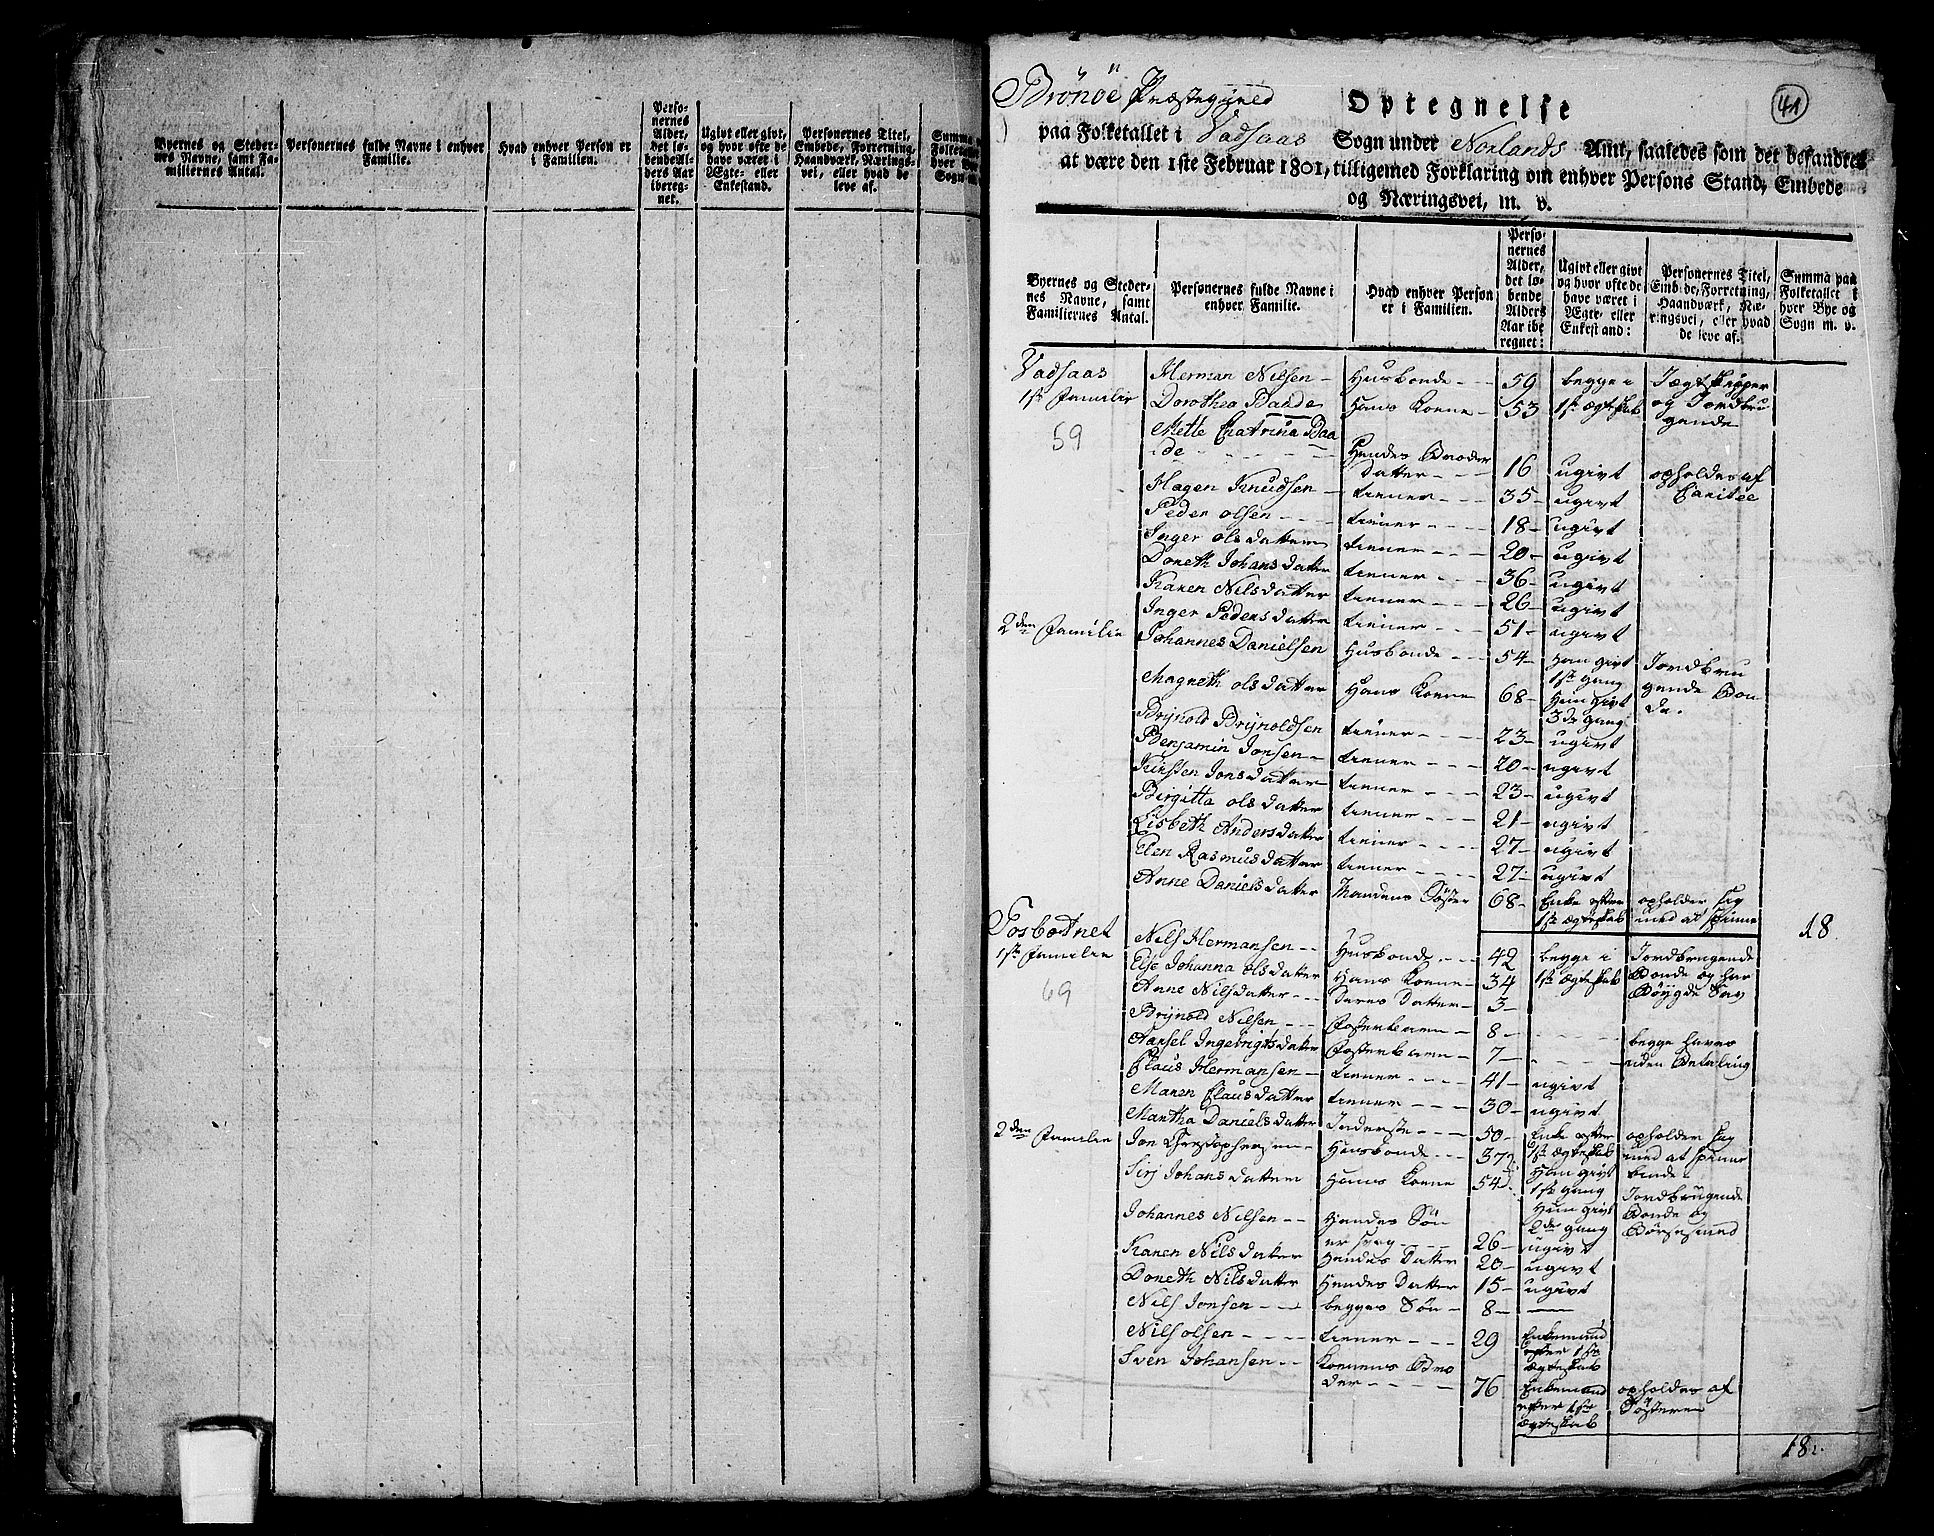 Byernes og Stedernes Navne, samt Familiernes Antal.
Personernes fulde Navne i enhver Familie.
Hvad enhver Person er i Familien.
Personernes Alder, det løbende Alders Aar iberegnet.
Ugivt eller givt, og hvor ofte de have været i Ægte- eller Enkestand.
Personernes Titel, Embede, Forretning, Haandværk, Næringsvei, eller hvad de leve af.
Brönöe Præstegjned
41
Optegnelse
paa Folketallet i Vadsaas Sogn under Norlands Amt, saaledes som det befandtes
at være den 1ste Februar 1801, tilligemed Forklaring om enhver Persons Stand, Embede
og Næringsvei, m. v.
Byernes og Stedernes Navne, samt Familiernes Antal.
Personernes fulde Navne i enhver Familie.
Hvad enhver Person er i Familien.
Personernes Alder, det løbende Alders Aar iberegnet:
Ugivt eller givt og hvor ofte de have været i Ægte- eller Enkestand:
Personernes Titel, Embede, Forretning, Haandværk, Næringsvei, eller hvad de leve af.
Summa paa Folketallet i hver Bye og Sogn m. v.
Vadsaas Herman Nilsen - Husbonde - - 59 begge i Jægtskipper
1ste Familie Dorothea Baade Hans Konne - 53 1ste ægteskab og Jordbru
59 Mette Chatrina Baa gende
de - - - Hendes Broder
Datter - - 16 ugivt opholdes af
Hagen Knudsen - tiener - - - 35 - ugivt Caritee
Peder olsen - - - tiener - - - 18 - ugivt
Inger olsdatter tiener - - - 20 - ugivt
Doreth Johansdatter tiener - - - 36 - ugivt
Karen Nilsdatter tiener - - - 26 - ugivt
Inger Pedersdatter tiener - - - 51 - ugivt
2den Familie Johannes Danielsen Husbonde - - 54 - Han givt Jordbru
1ste gang gende Bon
Magreth olsdatter Hans Konne 68 - Hun givt de.
3de gang
Brijnold Brijnoldsen tiener - - - 23 - ugivt
Benjamin Jonsen - tiener - - - 20 - ugivt
Kirsten Jonsdatter tiener - - - 23 - ugivt
Birgitta olsdatter tiener - - - 21 - ugivt
Lisbeth Andersdatter tiener - - - 27 - ugivt
Elen Rasmusdatter tiener - - - 27 - ugivt
Anne Danielsdatter Mandens Söster 68 - Enke efter opholder sig
1ste ægteskab med at spinne 18
Tosbotnet Nils Hermansen - - Husbonde - - 42 begge i Jordbrugende
1ste Familie Else Johanna olsdatter Hans Konne - 34 1ste ægteskab Bonde og har
69 Anne Nilsdatter - - Deres Datter - 3 - Böygde Sav
Brijnold Nilsen - - - Fosterbarn - 8 - - - -
Aarsel Ingebrigtsdatter Fosterbarn - 7 - - - - begge haves
Claus Hermansen - tiener - - - 41 - ugivt uden Betaling
Maren Clausdatter tiener - - - 30 - ugivt
Martha Danielsdatter Inderste - - 50 - Enke efter opholder sig
1ste ægteskab med at spinne
2den Familie Jon Christophersen - Husbonde - - 37 Han givt binde -
Sirj Johansdatter Hans Konne 54 1ste gang Jordbrugende
Hun givt Bonde og
Johannes Nilsen - - Hendes Sön 2de gang
er svag - - - 26 - ugivt
Karen Nilsdatter Hendes Datter 20 - ugivt
Doreth Nilsdatter Hendes Datter 15 - ugivt
Nils Jonsen - - - begges Sön - 8 -
Nils olsen - - - - tiener - - - 29 Enkemand
efter 1ste
ægteskab
Sven Johansen - - Konnens Bro
der - - - - 76 Enkemand opholdes af
efter 1ste Sösteren
ægteskab
18